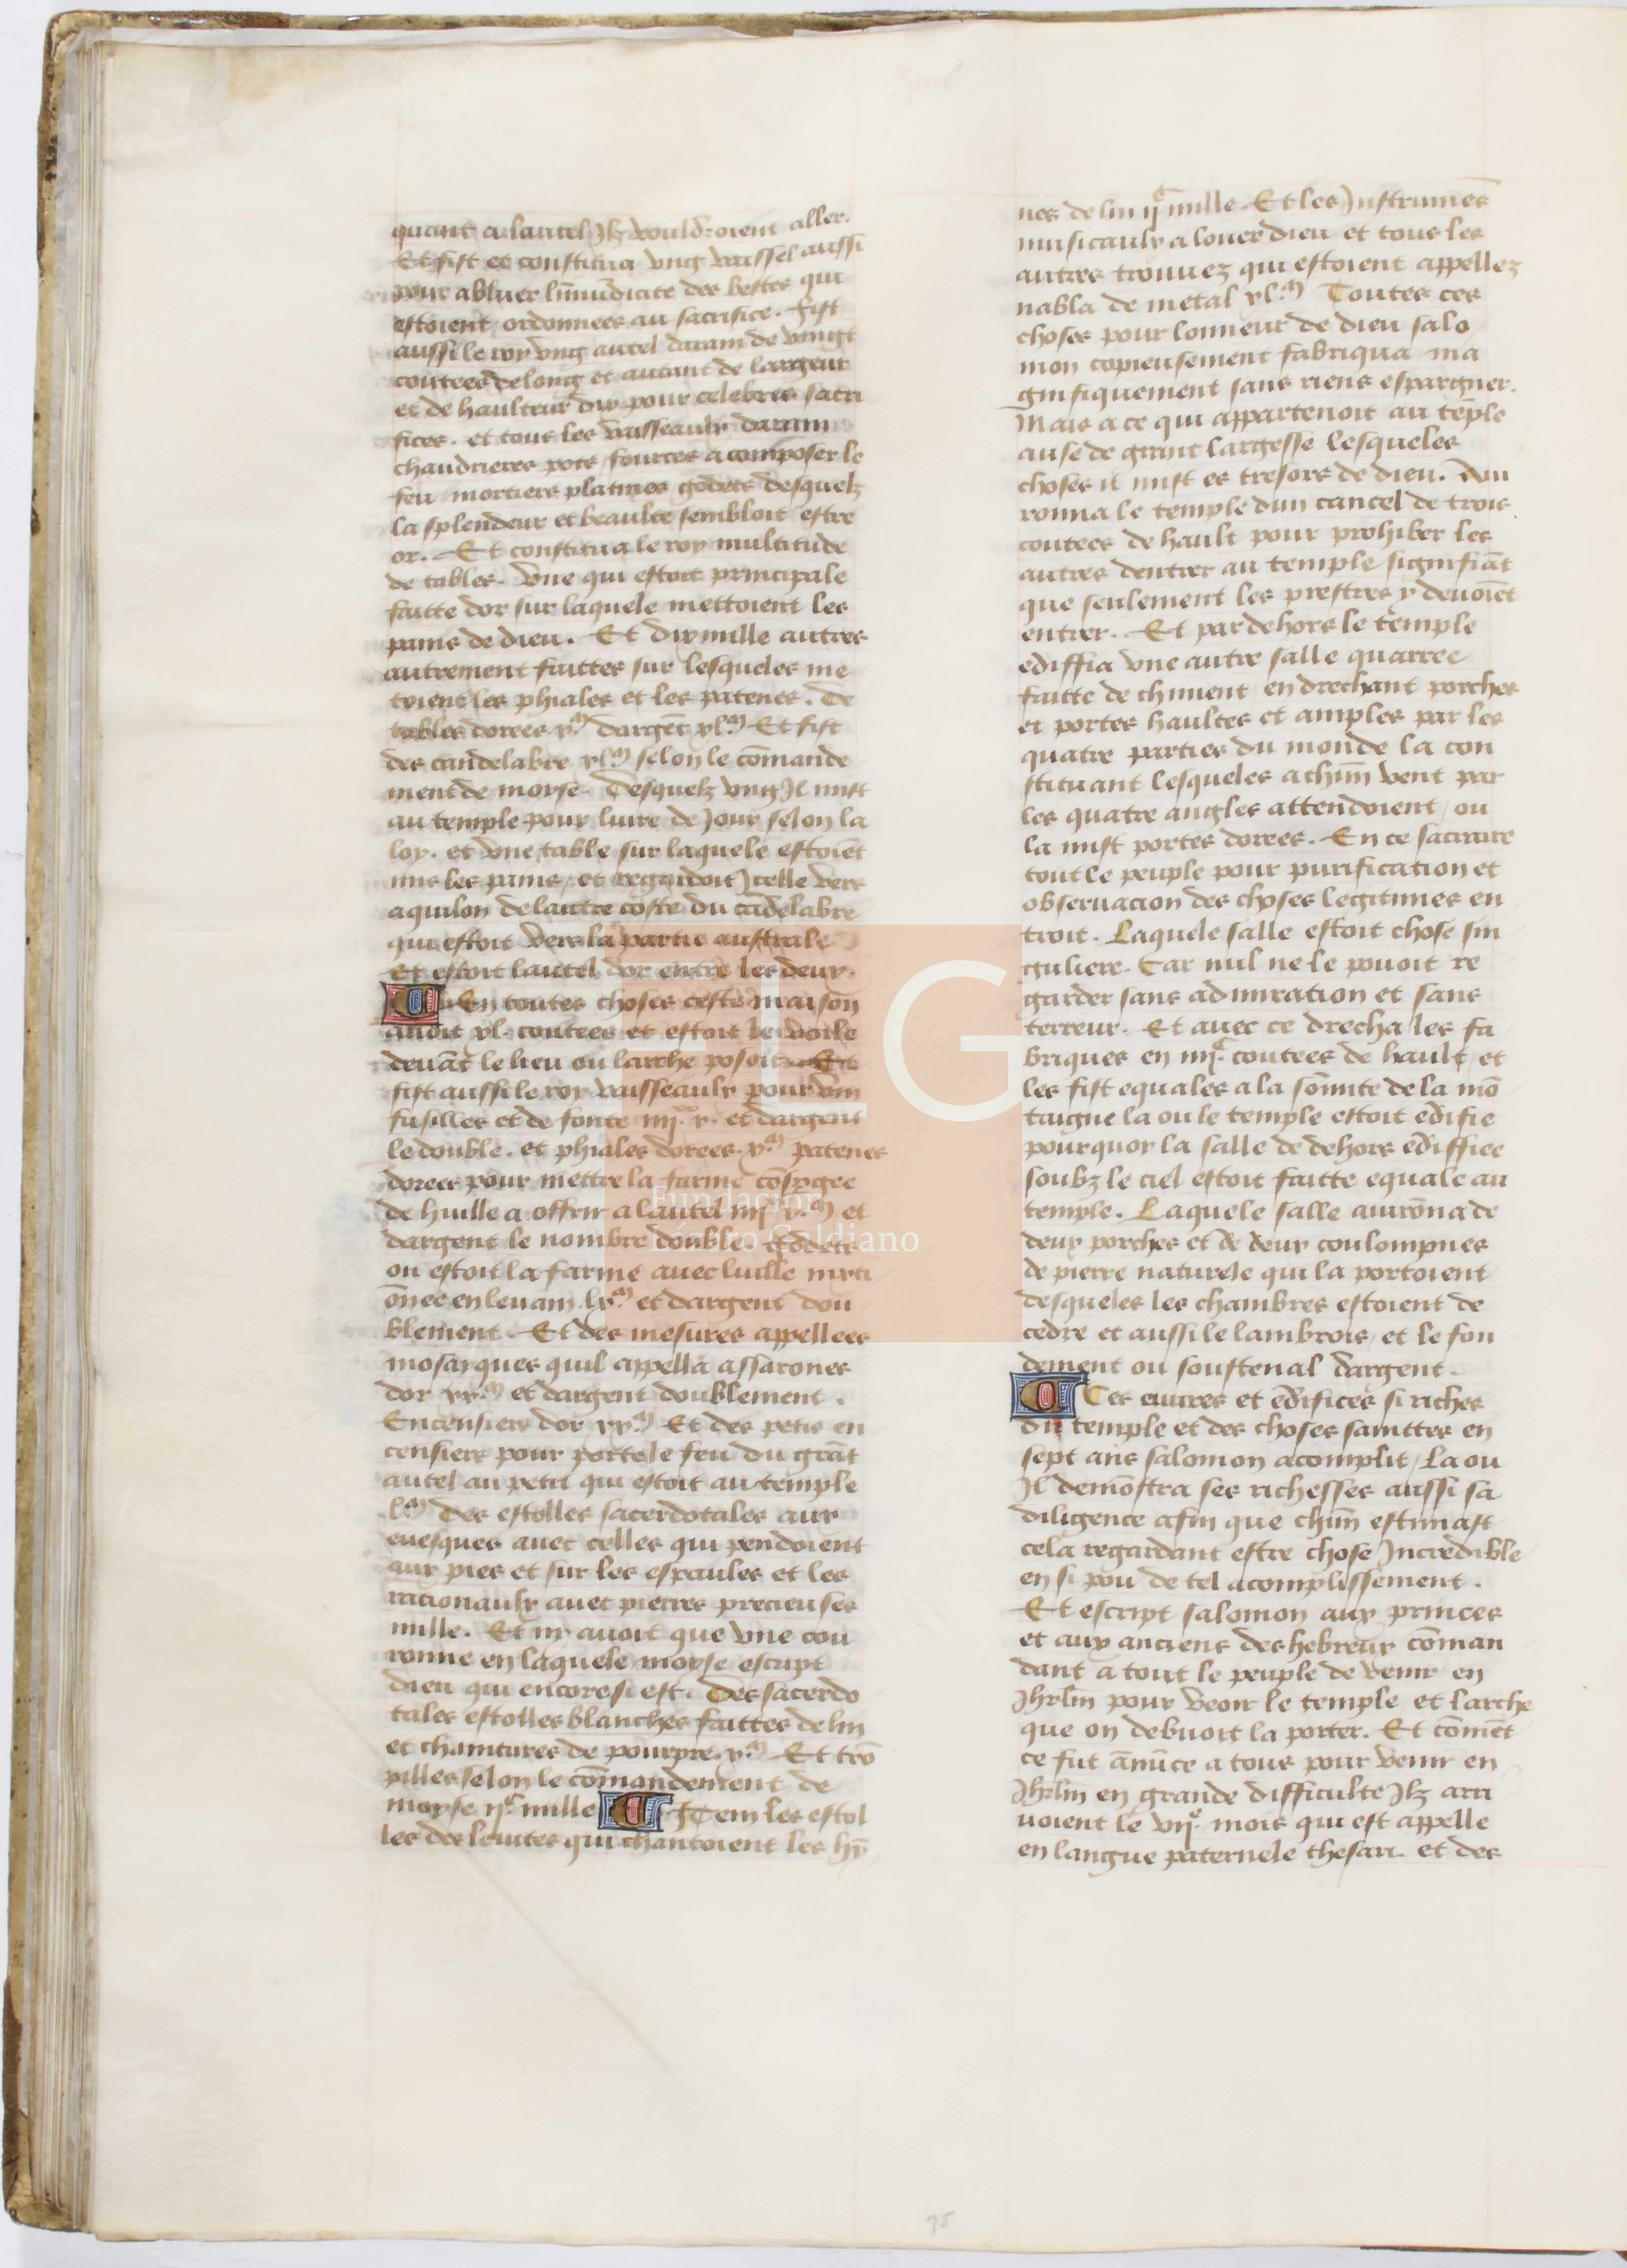 quant a lautel Ilz vouldroient aller.
Et fist et constitua vng vaissel aussi
pour abluer linmūdicite des bestes qui
estoient ordonnees au sacrifice. fist
aussi le roy vng autel daram de vingt
coutees de long et autant de largeur
et de haulteur dix pour celebrer sacri
fices. et tous les vaisseaulx daram
chaudrieres pots fources a composer le
feu mortiers platines godets desquelz
la splendeur et beaulte sembloit estre
or. Et constitua le roy multitude
de tables. vne qui estoit principale
faitte dor sur laquele mettoient les
pains de dieu. Et dix mille autres
autrement faittes sur lesqueles me
toient les phiales et les patenes. De
tables dorees x.m dargēt xl.m Et fist
des candelabre xl.m selon le cōmande
ment de moyse. Desquelz vng Il mist
au temple pour luire de Jour selon la
loy. et vne table sur laquele estoiēt
mis les pains, et regardoit Icelle vers
aquilon de lautre coste du cādelabre
qui estoit vers la partie australe
Et estoit lautel dor entre les deux.
En toutes choses ceste maison
auoit xl. coutees et estoit le voile
deuāt le lieu ou larche posoit Et
fist aussi le roy vaisseaulx pour vin
fusilles et de fonte iiij.xx x. et dargent
le double. et phiales dorees x.m patenes
dorees pour mettre la farine cōspgee
de huille a offrir a lautel iiij.xx m et
dargent le nombre double. Godets
ou estoit la farine auec luille mixti
ōnee en leuain lx.m et dargent dou
blement. Et des mesures appellees
mosayques quil appella assarones
dor xx.m et dargent doublement.
Encensiers dor xx.m Et des petis en
censiers pour porter le feu du grāt
autel au petit qui estoit au temple
l.m Des estolles sacerdotales aux
euesques auec celles qui pendoient
aux pies et sur les espaules et les
racionaulx auec pierres precieuses
mille. Et ny auoit que vne cou
ronne en laquele moyse escript
dieu qui encore si est. Des sacerdo
tales estolles blanches faittes de lin
et chaintures de pourpre. x.m Et trō
pilles selon le cōmandement de
moyse ij.c mille Item les estol
les des leuites qui chantoient les hȳ
nes de lin ij.c mille. Et les Instrumēs
musicaulx a louer dieu et tous les
autres trouuez qui estoient appellez
nabla de metal xl.m Toutes ces
choses pour lonneur de dieu salo
mon copieusement fabriqua ma
gnifiquement sans riens espargner.
Mais a ce qui appartenoit au tēple
ause de grant largesse lesqueles
choses il mist es tresors de dieu. Aui
ronna le temple dun cancel de trois
coutees de hault pour prohiber les
autres dentrer au temple signifiāt
que seulement les prestres y deuoiēt
entrer. Et par dehors le temple
ediffia vne autre salle quarree
faitte de chiment en drechant porches
et portes haultes et amples par les
quatre parties du monde la con
stituant lesqueles a chūn vent par
les quatre angles attendoient, ou
la mist portes dorees. En ce sacraire
tout le peuple pour purification et
obseruacion des choses legitimes en
troit. Laquele salle estoit chose sin
guliere. Car nul ne le pouoit re
garder sans admiration et sans
terreur. Et auec ce drecha les fa
briques en iiij.c coutees de hault, et
les fist equales a la sōmite de la mō
taigne la ou le temple estoit edifie
pourquoy la salle de dehors ediffiee
soubz le ciel estoit faitte equale au
temple. Laquele salle auirōna de
deux porches et de deux coulompnes
de pierre naturele qui la portoient
desqueles les chambres estoient de
cedre et aussi le lambrois, et le fon
dement ou soustenal dargent.
Ces euures et edifices si riches
du temple et des choses saincttes en
sept ans salomon acomplit, La ou
Il demōstra ses richesses aussi sa
diligence afin que chūn estimast
cela regardant estre chose Incredible
en si pou de tel acomplissement.
Et escript salomon aux princes
et aux anciens des hebreux cōman
dant a tout le peuple de venir en
Jhrlm pour veoir le temple et larche
que on debuoit la porter. Et cōmēt
ce fut ānūce a tous pour venir en
Jhrlm en grande difficulte Ilz arri
uoient le vij.e mois qui est appelle
en langue paternele thesari. et des
FLG
Fundación
Lázaro Galdiano
75